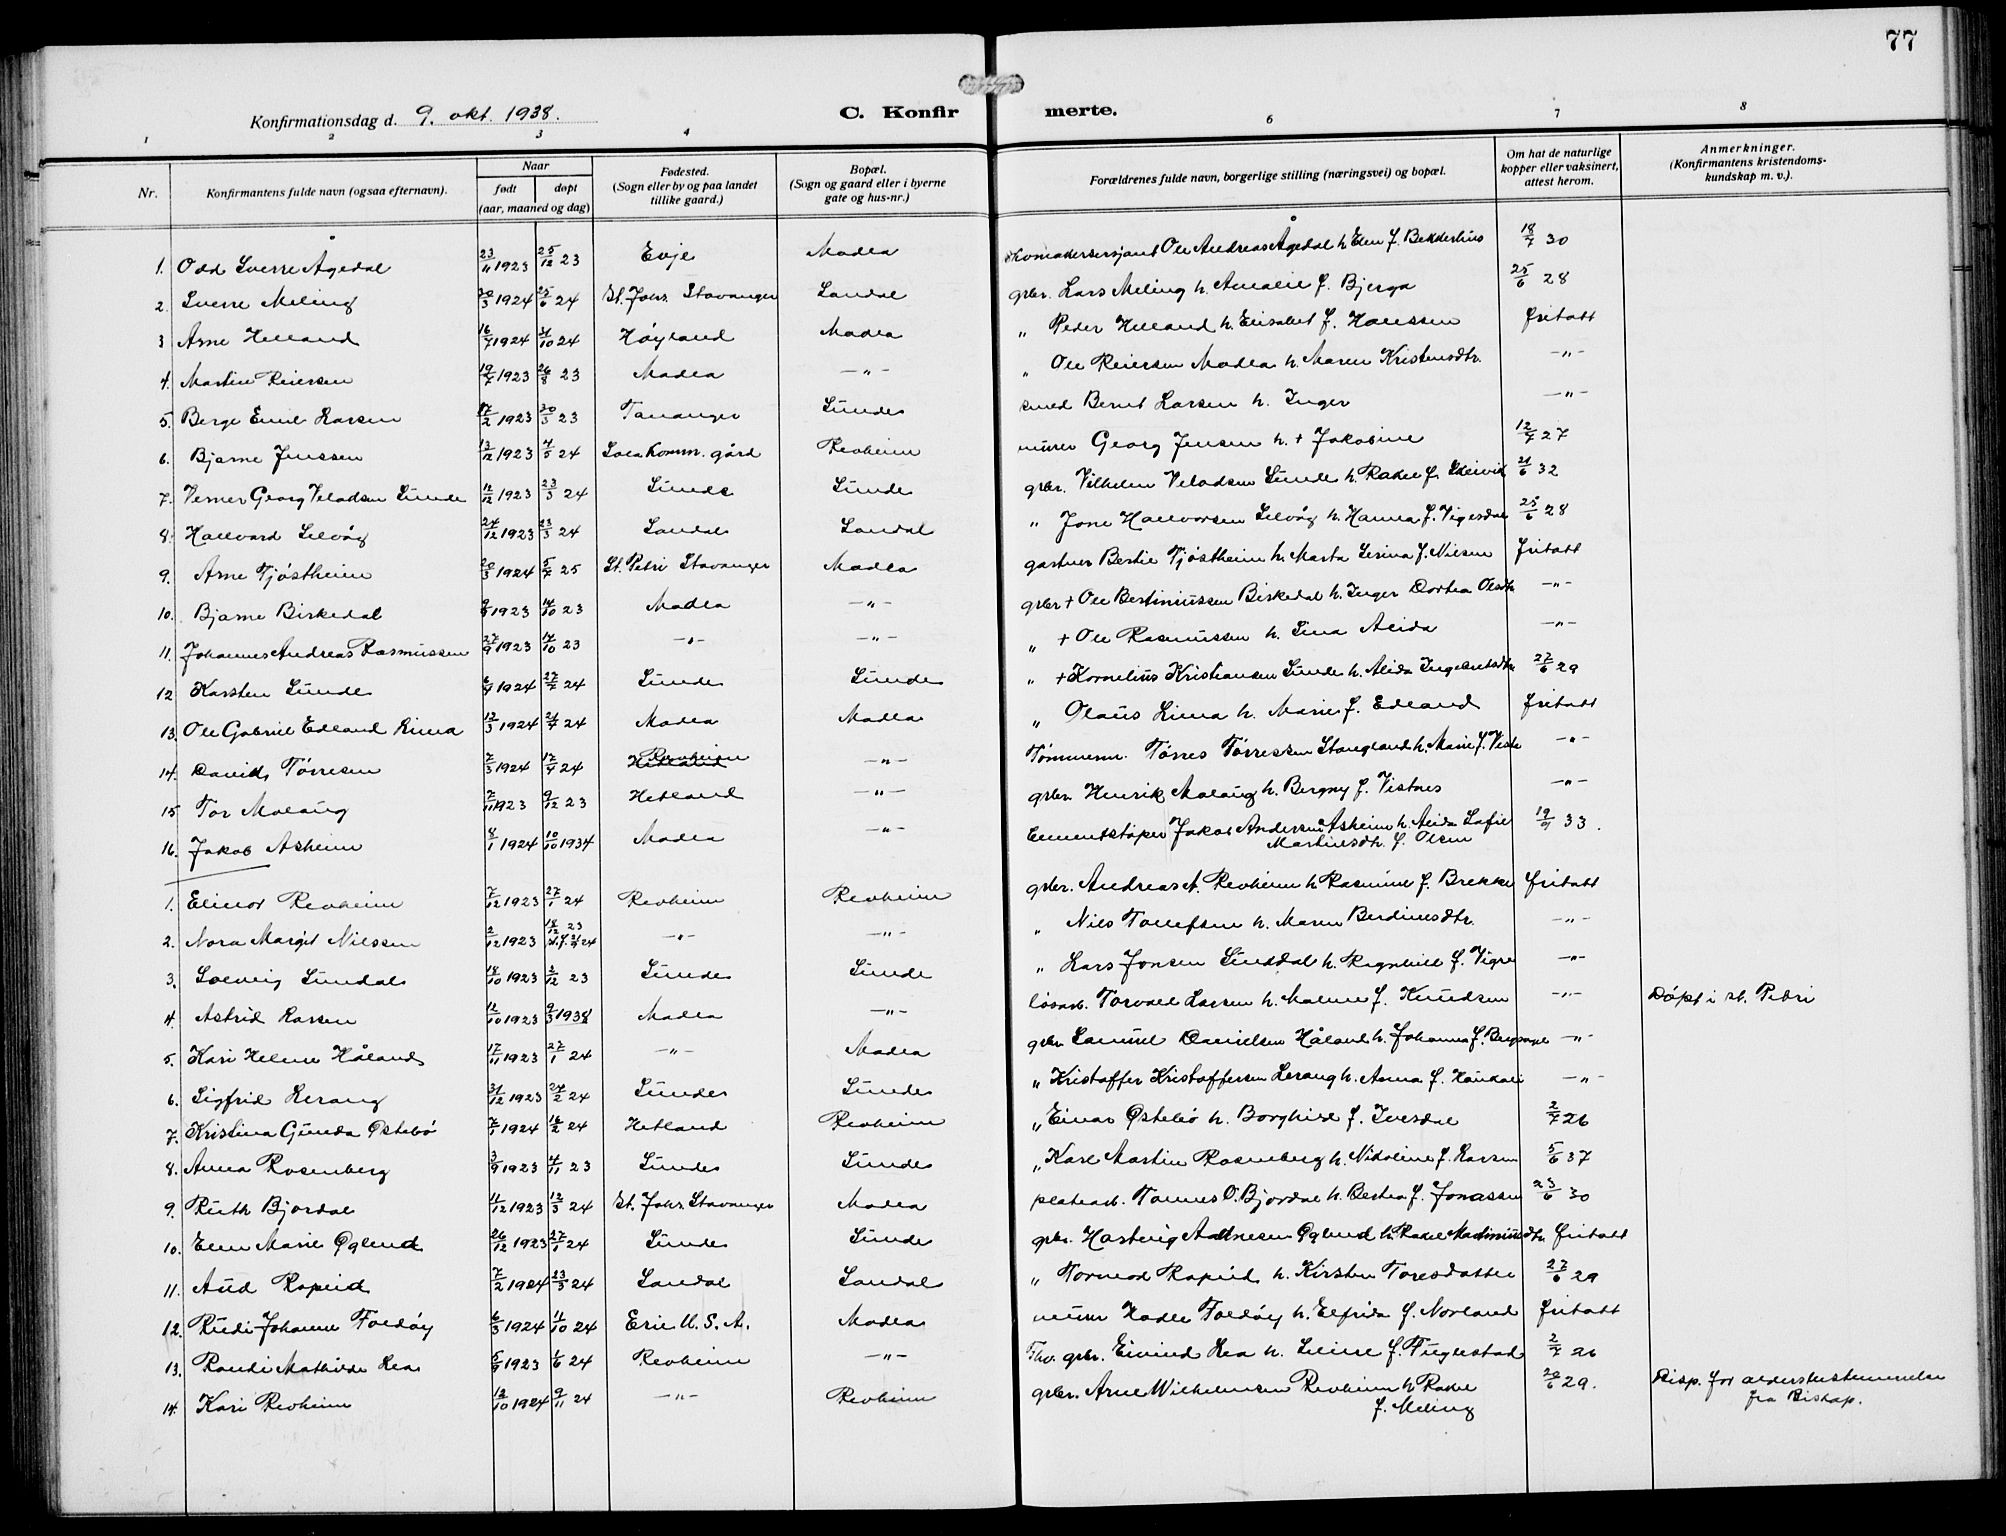 77
Konfirmationsdag d. 9. okt. 1938.
C. Konfirmerte.
1 2 3 4 6 7 8
Nr.
Konfirmantens fulde navn (ogsaa efternavn).
Naar
født
døpt
(aar, maaned og dag)
Fødested.
(Sogn eller by og paa landet
tillike gaard.)
Bopæl.
(Sogn og gaard eller i byerne
gate og hus-nr.)
Forældrenes fulde navn, borgerlige stilling (næringsvei) og bopæl.
Om hat de naturlige
kopper eller vaksinert,
attest herom.
Anmerkninger.
(Konfirmantens kristendoms-
kundskap m. v.).
1. Odd Sverre Ågedal 23/11 1923 25/12 23 Evje Madla Ole Andreas Ågedal h. Elen f. Bekkerhus 18/7 30
2. Sverre Meling 30/3 1924 25/6 24 St. Johs. Stavanger Sandal grbr. Lars Meling h. Amalie f. Bjerga 25/6 28
3 Arne Helland 16/7 1924 31/10 24 Høyland Madla " Peder Helland h. Elisabet f. Hanssen fritatt
4. Martin Reiersen 19/7 1923 26/8 23 Madla —"— " Ole Reiersen Madla h. Maren Kristensdtr. —"—
5. Berge Emil Larsen 17/2 1923 30/3 23 Tananger Sunde smed Bernt Larsen h. Inger —"—
6. Bjarne Jenssen 13/12 1923 4/5 24 Sola komm. gård Revheim murer Georg Jensen h. + Jakobine 12/7 27
7. Verner Georg Veladsen Sunde 11/12 1923 23/3 24 Sunde Sunde grbr. Vilhelm Veladsen Sunde h. Rakel f. 21/6 32
8. Hallvard Selvåg 24/12 1923 23/3 24 Sandal Sandal " Jone Hallvorsen Selvåg h. Hanna f. Vigesdal 25/6 28
9. Arne Tjøstheim 20/3 1924 5/7 25 St. Petri Stavanger Madla gartner Bertie Tjøstheim h. Marta Serina f. Nilsen fritatt
10. Bjarne Birkedal 9/9 1923 14/10 23 Madla —"— grbr + Ole Bertiniussen Birkedal h. Inger Dortea Olsdtr —"—
11. Johannes Andreas Rasmussen 27/9 1923 14/10 23 —"— —"— " + Ole Rasmussen h. Sina Alida —"—
12 Karsten Sunde 6/4 1924 27/7 24 Sunde Sunde " + Kornelius Kristiansen Sunde h. Alida Ingebretsdtr 27/6 29
13. Ole Gabriel Edland Lima 13/3 1924 21/4 24 Madla Madla " Olaus Lima h. Marie f. Edland fritatt
14. David Tørresen 7/3 1924 17/4 24 Revheim —"— Tømmerm. Tørres Tørressen Stangland h. Marie f. Viste —"—
15 Tor Molaug 7/11 1923 9/12 23 Hetland —"— grbr. Henrik Molaug h. Bergny f. Vistnes —"—
16. Jakob Asheim 8/1 1924 10/10 1934 Madla —"— Cementstøper Jakob Andersen Asheim h. Alida Sofie 19/9 33.
Martinsdtr. f. Olsen
1. Elinor Revheim 7/12 1923 27/1 24 Revheim Revheim grbr. Andreas A. Revheim h Rasmine f. Brekke fritatt
2. Nora Margit Nilssen 2/12 1923 18/12 23 —"— —"— " Nils Tollefsen h. Maren Berdinesdtr. —"—
3. Solveig Sundal 18/10 1923 2/12 23 Sunde Sunde " Lars Jonsen Sunddal h. Ragnhild f. Vigre —"—
4. Astrid Larsen 11/10 1923 9/3 1938 Madla —"— løsarb. Torvald Larsen h. Malene f. Knudsen —"— Døpt i st. Petri
5. Kari Helene Håland 17/11 1923 27/1 24 —"— Madla grbr Samuel Danielsen Håland h. Johanna f. Bergsagel —"—
6. Sigfrid Lerang 31/12 1923 24/2 24 Sunde Sunde " Kristoffer Kristoffersen Lerang h. Anna f. Haukali —"—
7. Kristina Gunda Østebø 7/1 1924 16/2 24 Hetland Revheim " Einar Østebø h. Borghild f. Ivesdal 2/7 26
8. Anna Rosenberg 3/9 1923 4/11 23 Sunde Sunde " Karl Martin Rosenberg h. Nikoline f. Larsen 5/6 37
9. Ruth Bjordal 11/12 1923 13/3 24 St. Johs. Stavanger Madla platearb. Tønnes O. Bjordal h. Bertea f. Jonassen 23/6 30
10. Elen Marie Øglend 26/12 1923 27/1 24 Sunde Sunde grbr. Hartvig Adnesen Øglend h. Rakel fritatt
11. Aud Ropeid 7/2 1924 23/3 24 Sandal Sandal " Tormod Ropeid h. Kirsten Toresdatter 27/6 29
12. Rudi Johanne Foldøy 6/3 1924 11/10 24 Erie U.S.A. Madla murer Kadle Foldøy h. Elfrida f. Norland fritatt
13. Randi Mathilde Lea 5/9 1923 1/6 24 Revheim —"— Fhv. grbr. Eivind Lea h. Seline f. Fuglestad 2/7 26
14. Kari Revheim 13/10 1924 9/11 24 —"— Revheim grbr. Arne Wilhelmsen Revheim h Rakel 20/6 29. Disp. for aldersbestemmelse
f. Meling fra Biskop.